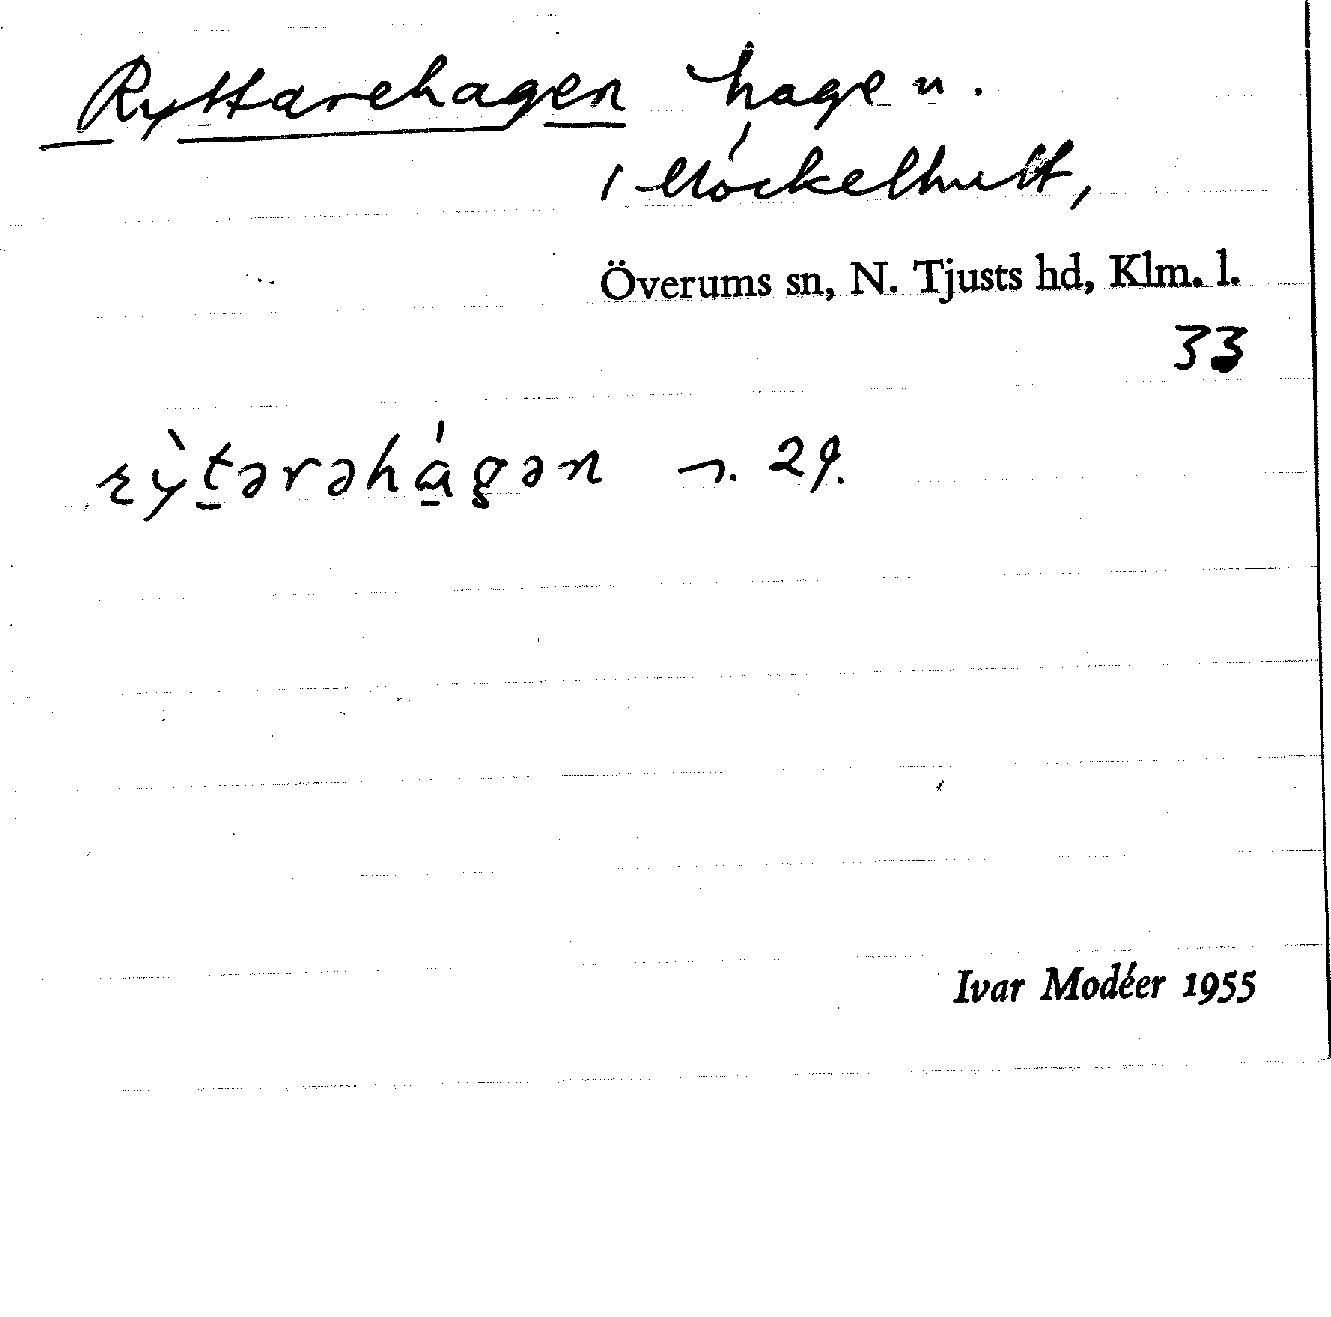 Ryttarehagen hage n.
i Möckelhult,
Överums sn, N. Tjusts hd, Klm. l.
33
rỳt̠ərəhá̠gən s. 29.
Ivar Modéer 1955